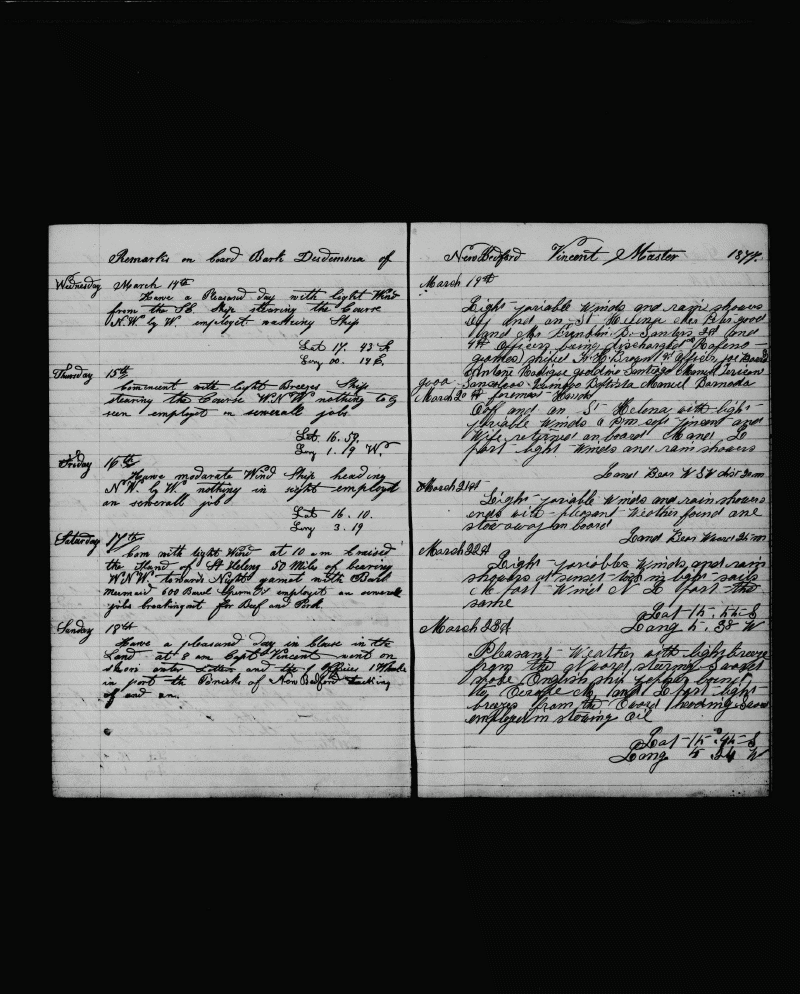 Remarks on board Bark Desdemona of
Wednesday March 14th
Have a Pleasand day with light Wind
from the SE. Ship stearing the Course
N.W. by W. employet making Ship
Lat 17. 43 S
Long 00. 14 E.
Thursday 15th
Commencent with light Breezes Ship
stearing the Course W.N.W. nothing to be
seen employet on severall jobs
Lat 16. 59.
Long 1. 19 W.
Friday 16th
Have moderate Wind Ship heading
N.W. by W. nothing in sight employet
on severall job
Lat 16. 10.
Long 3. 19
Saturday 17th
Com with light Wind at 10 a m raised
the Iland of St Helena 50 Miles of bearing
W.N.W. towards Night gamet with Bark
Mermaid 600 Barel Sperm employet on several
jobs breaking out for Beef and Pork
Sunday 18th
Have a pleasand day in close in the
Land at 8 am Capt Vincent went on
shore enter Letters and the Officers
in port the of New Bedford tacking
of and on.
New Bedford Vincent Master 1877.
March 19th
Light variable Winds and rain showers
off and on St Helena
and Mr Franklin D. Santers 3d and
4th Officers being discharged
shiped officer
Antone Santiago Manuel
Baptista Manuel
March 20th
Off and on St Helena with light
variable Winds a P m Capt Vincent and
Wife returned on board M and L
part light Winds and rain showers
Land Bear W S W dist 20 m
March 21st
Light variable Winds and rain showers
ends with pleasant Weather found one
stowaway on board
Land Bear 25 m
March 22d
Light variables Winds and rain
showers at sunset took in light sails
M part Wind N E L part the
same
Lat 15. 55 S
Long 5. 38 W
March 23d
Pleasant Weather with light breeze
from the steering
spoke English ship
M and L part light
breezes from the heading
employed in stowing oil
Lat 15. 45 S
Long 5. 54 W